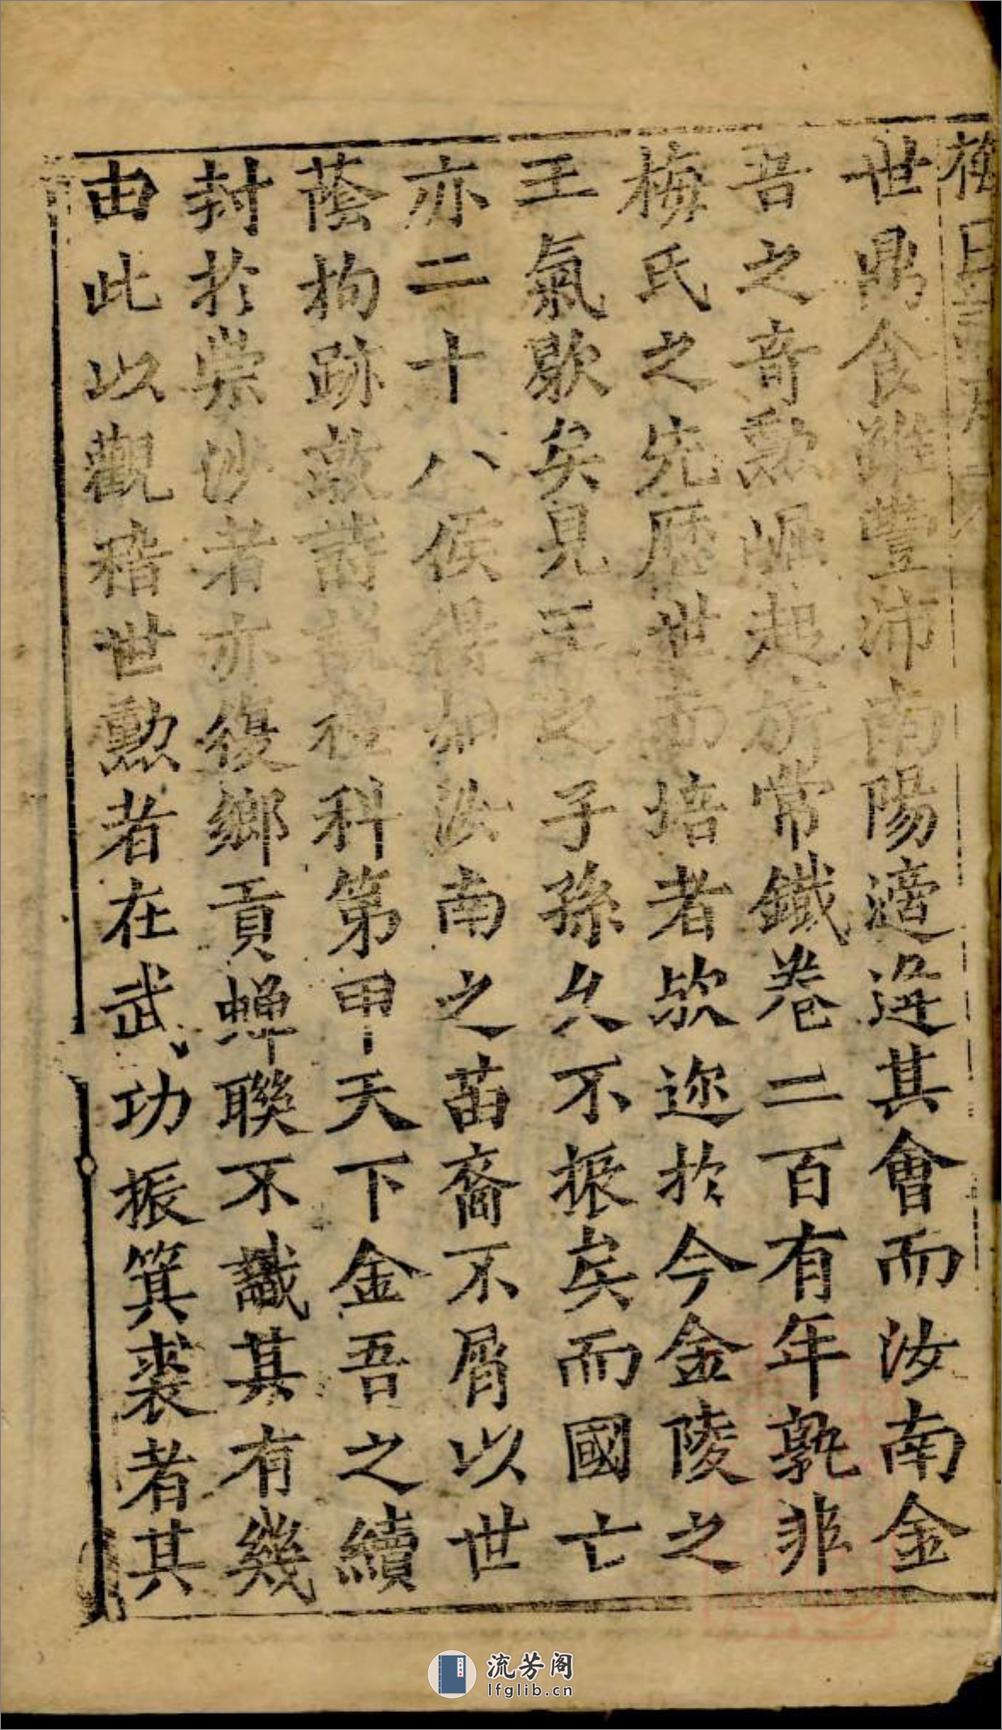 梅氏
世鼎食雖豐沛南陽適逢其會而汝南金
吾之奇勲崛起旂常鐵卷二百有年孰非
梅氏之先歴世而培者歟迩於今金陵之
王氣歇矣見王之子孫久不振矣而國亡
亦二十八侯得如汝南之苗裔不屑以世
蔭拘跡敦詩説禮科第甲天下金吾之續
封於崇沙者亦復鄉貢蟬聯不識其有幾
由此以觀稽世勲者在武功振箕裘者其
流芳阁
lfglib.cn